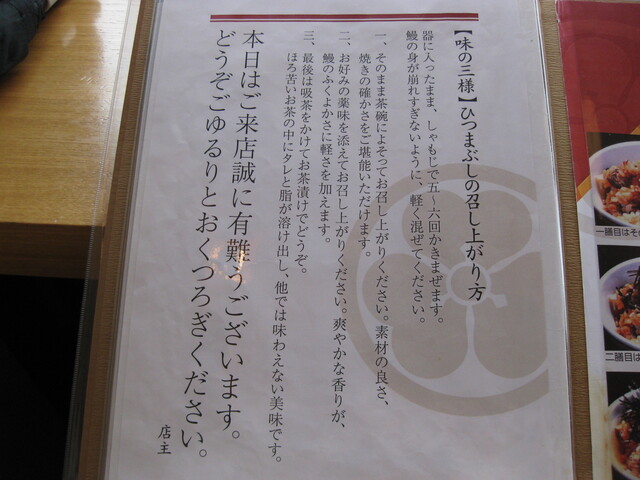 【味の三様】ひつまぶしの召し上がり方
器に入ったまま、しゃもじで五~六回かきまぜます。
鰻の身が崩れすぎないように、軽く混ぜてください。
一、そのまま茶碗によそってお召し上がりください。素材の良さ、
焼きの確かさをご堪能いただけます。
二、お好みの薬味を添えてお召し上がりください。爽やかな香りが、
鰻のふくよかさに軽さを加えます。
三、最後は吸茶をかけてお茶漬けでどうぞ。
ほろ苦いお茶の中にタレと脂が溶け出し、他では味わえない美味です。
本日はご来店誠に有難うございます。
どうぞごゆるりとおくつろぎください。
店主
一膳目はそ
二膳目は